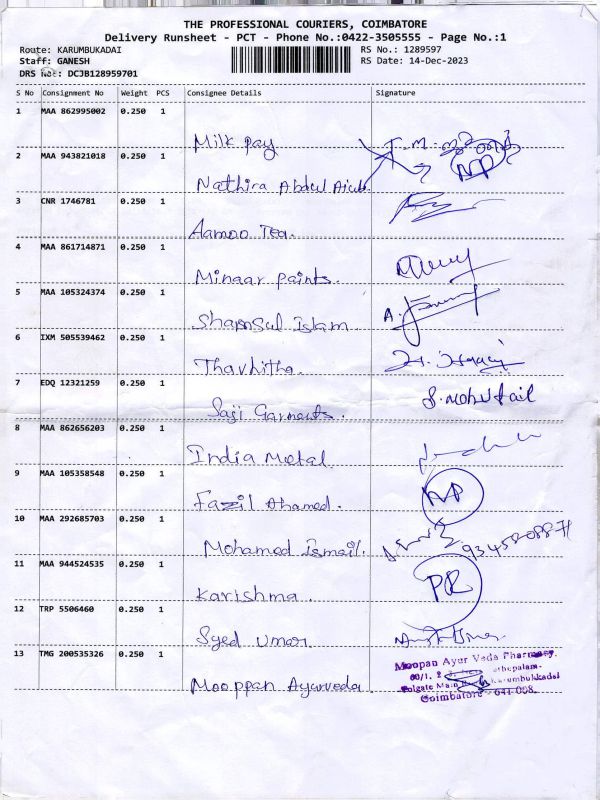 THE PROFESSIONAL COURIERS, COIMBATORE
Delivery Runsheet - PCT - Phone No.:0422-3505555 - Page No.:1
Route: KARUMBUKADAI RS No.: 1289597
Staff: GANESH RS Date: 14-Dec-2023
DRS No.: DCJB128959701
S No Consignment No Weight PCS Consignee Details Signature
1 MAA 862995002 0.250 1
Milk pay
2 MAA 943821018 0.250 1 NP
Nathira Abdul Aiub.
3 CNR 1746781 0.250 1
Aamoo Tea.
4 MAA 861714871 0.250 1
Minaar paints.
5 MAA 105324374 0.250 1
Shamsul Islam
6 IXM 505539462 0.250 1
Thavhitha.
7 EDQ 12321259 0.250 1
Saji Garments.
8 MAA 862656203 0.250 1
India Metal
9 MAA 105358548 0.250 1 NP
Fazil Ahamed.
10 MAA 292685703 0.250 1
Mohamed Ismail.
11 MAA 944524535 0.250 1 PR
Karishma.
12 TRP 5506460 0.250 1
Syed Umar
13 TMG 200535326 0.250 1 Moopan Ayur Veda Pharmacy.
Mooppan Ayurveda.
Coimbatore - 641 008.